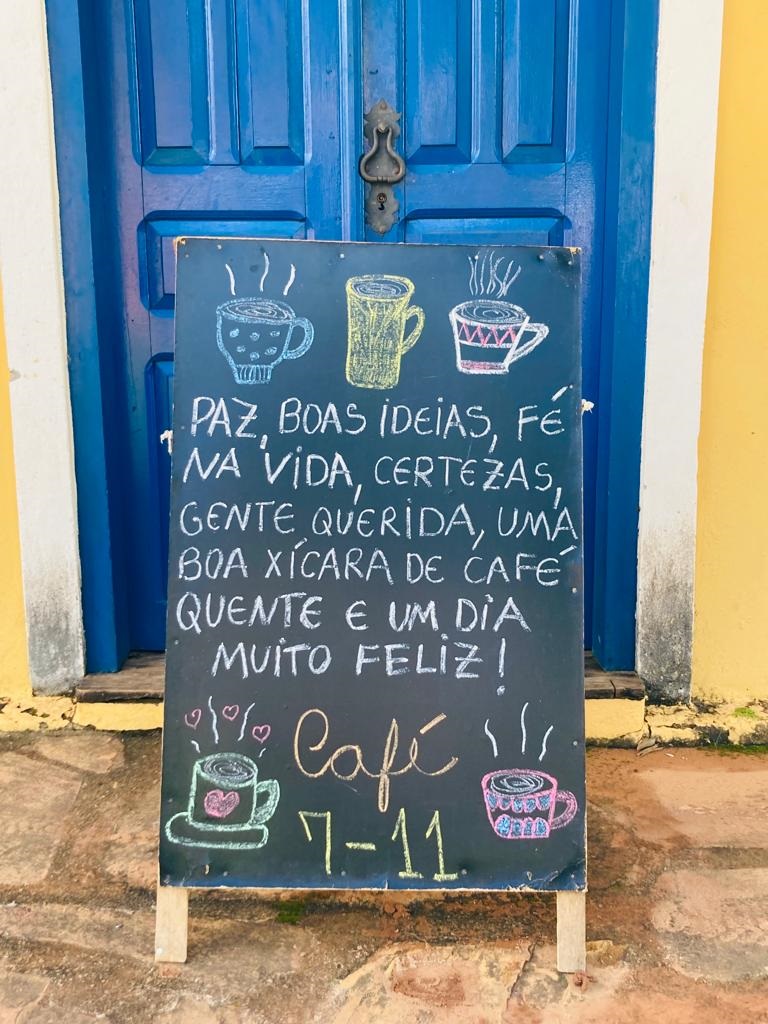 PAZ, BOAS IDEIAS, FÉ
NA VIDA, CERTEZAS,
GENTE QUERIDA, UMA
BOA XÍCARA DE CAFÉ
QUENTE E UM DIA
MUITO FELIZ!
Café
7-11